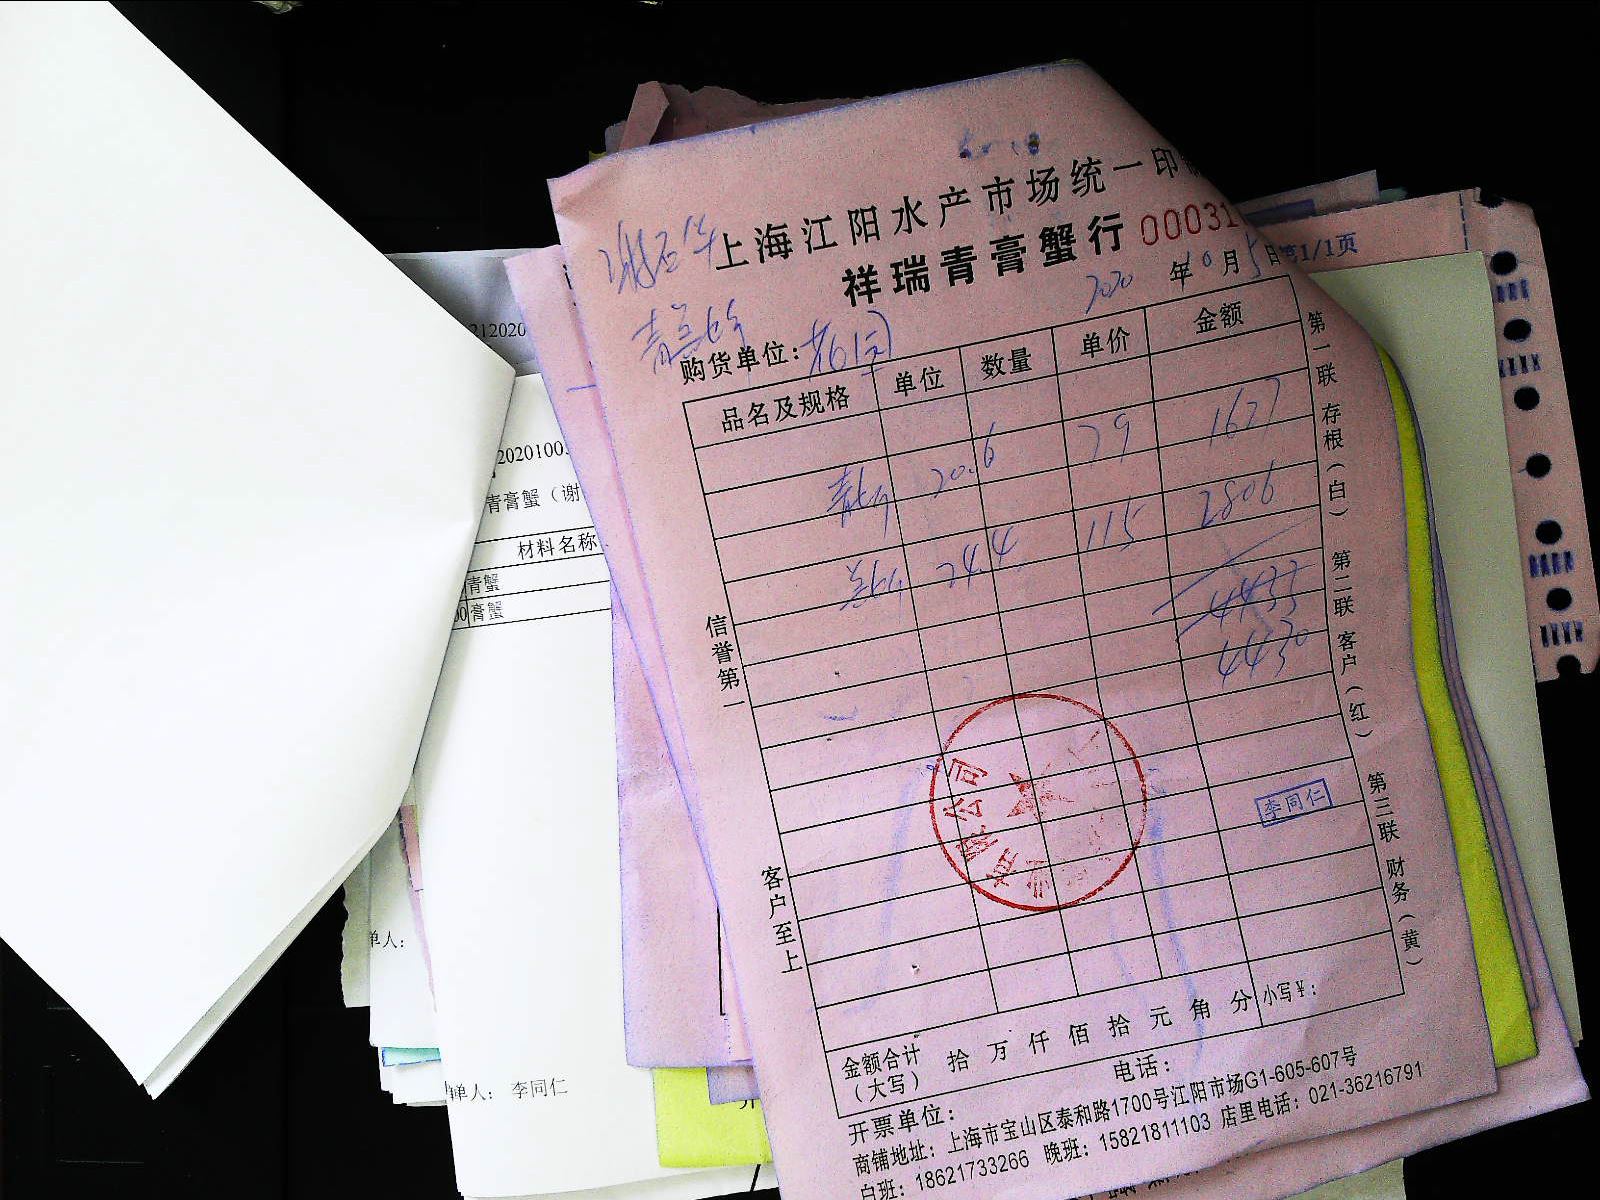 上海江阳水产市场统一印
祥瑞青膏蟹行 00031
2020 年 10 月 5 日
第1/1页
购货单位:
品名及规格 单位 数量 单价 金额
青蟹 20.6 79 1627
24.4 115 2806
4433
4430
信誉第一
客户至上
第一联 存根(白) 第二联 客户(红) 第三联 财务(黄)
公司
李同仁
金额合计(大写) 拾 万 仟 佰 拾 元 角 分 小写¥:
开票单位: 电话:
商铺地址: 上海市宝山区泰和路1700号江阳市场G1-605-607号
白班: 18621733266 晚班: 15821811103 店里电话: 021-36216791
212020
2020100
青膏蟹(谢
材料名称
青蟹
膏蟹
单人:
单人: 李同仁